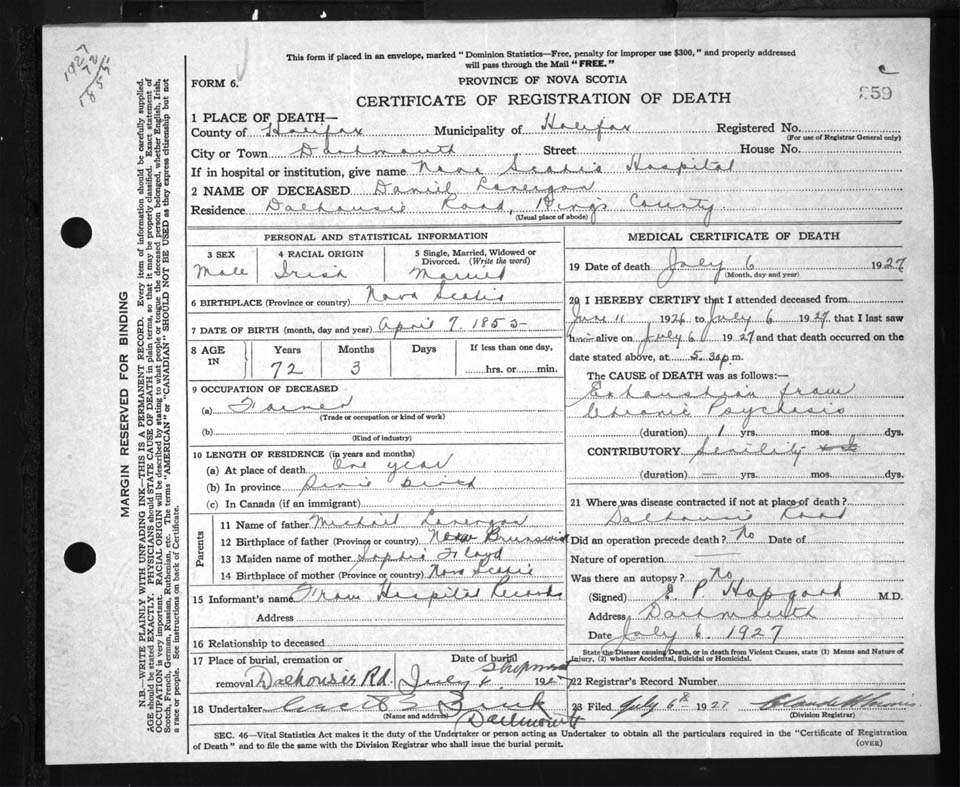 1927
72
1855
This form if placed in an envelope, marked "Dominion Statistics—Free, penalty for improper use $300," and properly addressed
will pass through the Mail "FREE."
FORM 6.
PROVINCE OF NOVA SCOTIA
CERTIFICATE OF REGISTRATION OF DEATH
859
1 PLACE OF DEATH—
County of Halifax Municipality of Halifax Registered No.
(For use of Registrar General only)
City or Town Dartmouth Street House No.
If in hospital or institution, give name Nova Scotia Hospital
2 NAME OF DECEASED Daniel Lonergan
Residence Dalhousie Road, Kings County
(Usual place of abode)
PERSONAL AND STATISTICAL INFORMATION
3 SEX 4 RACIAL ORIGIN 5 Single, Married, Widowed or
Divorced. (Write the word)
Male Irish Married
6 BIRTHPLACE (Province or country) Nova Scotia
7 DATE OF BIRTH (month, day and year) April 7. 1855
8 AGE IN Years Months Days If less than one day,
72 3 hrs. or min.
9 OCCUPATION OF DECEASED
(a) Farmer
(Trade or occupation or kind of work)
(b)
(Kind of industry)
10 LENGTH OF RESIDENCE (in years and months)
(a) At place of death One year
(b) In province Since birth
(c) In Canada (if an immigrant)
Parents
11 Name of father Michael Lonergan
12 Birthplace of father (Province or country) New Brunswick
13 Maiden name of mother Sophia Floyd
14 Birthplace of mother (Province or country) Nova Scotia
15 Informant's name From Hospital Records
Address
16 Relationship to deceased
17 Place of burial, cremation or Date of burial
removal Dalhousie Rd. Shipment July 1927
18 Undertaker Zink
(Name and address) Dartmouth
MEDICAL CERTIFICATE OF DEATH
19 Date of death July 6 1927
(Month, day and year)
20 I HEREBY CERTIFY that I attended deceased from
June 11 1926 to July 6 1927 that I last saw
him alive on July 6 1927 and that death occurred on the
date stated above, at 5.30 p.m.
The CAUSE OF DEATH was as follows:—
Exhaustion from
Chronic Psychosis
(duration) 1 yrs. mos. dys.
CONTRIBUTORY Senility
(duration) — yrs. mos. dys.
21 Where was disease contracted if not at place of death?
Dalhousie Road
Did an operation precede death? No Date of
Nature of operation —
Was there an autopsy? No
(Signed) E. P. Hopgood M.D.
Address Dartmouth
Date July 6. 1927
State the Disease causing Death, or in death from Violent Causes, state (1) Means and Nature of
Injury, (2) whether Accidental, Suicidal or Homicidal.
22 Registrar's Record Number
23 Filed July 6th 1927
(Division Registrar)
SEC. 46—Vital Statistics Act makes it the duty of the Undertaker or person acting as Undertaker to obtain all the particulars required in the "Certificate of Registration
of Death" and to file the same with the Division Registrar who shall issue the burial permit.
(OVER)
MARGIN RESERVED FOR BINDING
N.B.—WRITE PLAINLY WITH UNFADING INK—THIS IS A PERMANENT RECORD. Every item of information should be carefully supplied.
AGE should be stated EXACTLY. PHYSICIANS should STATE CAUSE OF DEATH in plain terms, so that it may be properly classified. Exact statement of
OCCUPATION is very important. RACIAL ORIGIN will be described by stating to what people or tongue the deceased person belonged, whether English, Irish,
Scotch, French, German, Russian, Ruthenian, etc. The terms "AMERICAN" or "CANADIAN" SHOULD NOT BE USED as they express citizenship but not
a race or people. See instructions on back of Certificate.